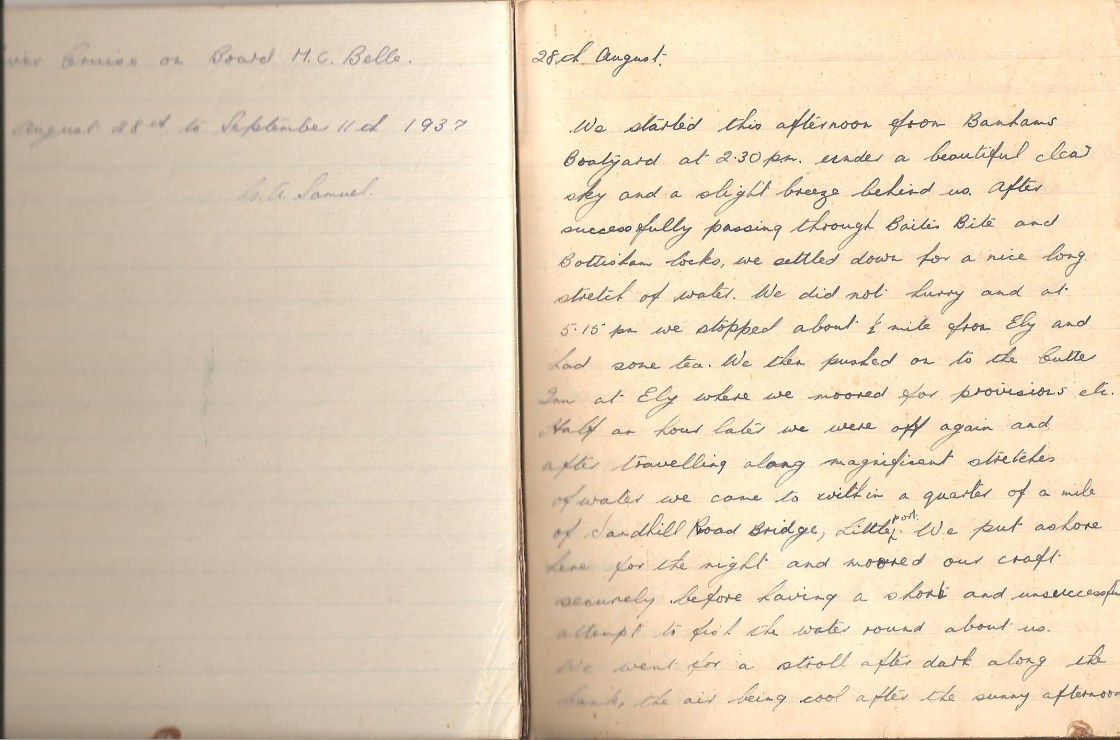 ver Cruise on Board M.C. Belle.
August 28th to September 11th 1937
G.A. Samuel.
28th August.
We started this afternoon from Banhams
Boatyard at 2.30 pm. under a beautiful clear
sky and a slight breeze behind us. After
successfully passing through Baits Bite and
Bottisham locks, we settled down for a nice long
stretch of water. We did not hurry and at
5.15 pm we stopped about ½ mile from Ely and
had some tea. We then pushed on to the Cutter
Inn at Ely where we moored for provisions etc.
Half an hour later we were off again and
after travelling along magnificent stretches
of water we came to within a quarter of a mile
of Sandhill Road Bridge, Littleport. We put ashore
here for the night and moored our craft
securely before having a short and unsuccessful
attempt to fish the water round about us.
We went for a stroll after dark along the
bank, the air being cool after the sunny afternoon